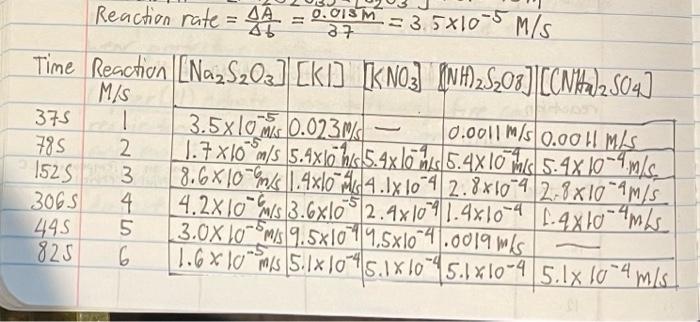 Reaction rate = ΔA/Δt = 0.013M/37 = 3.5x10⁻⁵ M/s
Time Reaction [Na₂S₂O₃] [KI] [KNO₃] [(NH)₂S₂O8] [(NH₄)₂SO₄]
M/S
37s 1 3.5x10⁻⁵ m/s 0.023M/s — 0.0011 m/s 0.0011 M/s
78s 2 1.7x10⁻⁵ m/s 5.4x10⁻⁴ m/s 5.4x10⁻⁴ m/s 5.4x10⁻⁴ m/s 5.4x10⁻⁴ m/s
152s 3 8.6x10⁻⁶ m/s 1.4x10⁻⁴ m/s 4.1x10⁻⁴ 2.8x10⁻⁴ 2.8x10⁻⁴ M/s
306s 4 4.2x10⁻⁶ m/s 3.6x10⁻⁵ 2.4x10⁻⁴ 1.4x10⁻⁴ 1.4x10⁻⁴ m/s
44s 5 3.0x10⁻⁵ m/s 9.5x10⁻⁴ 9.5x10⁻⁴ .0019 m/s —
82s 6 1.6x10⁻⁵ m/s 5.1x10⁻⁴ 5.1x10⁻⁴ 5.1x10⁻⁴ 5.1x10⁻⁴ m/s